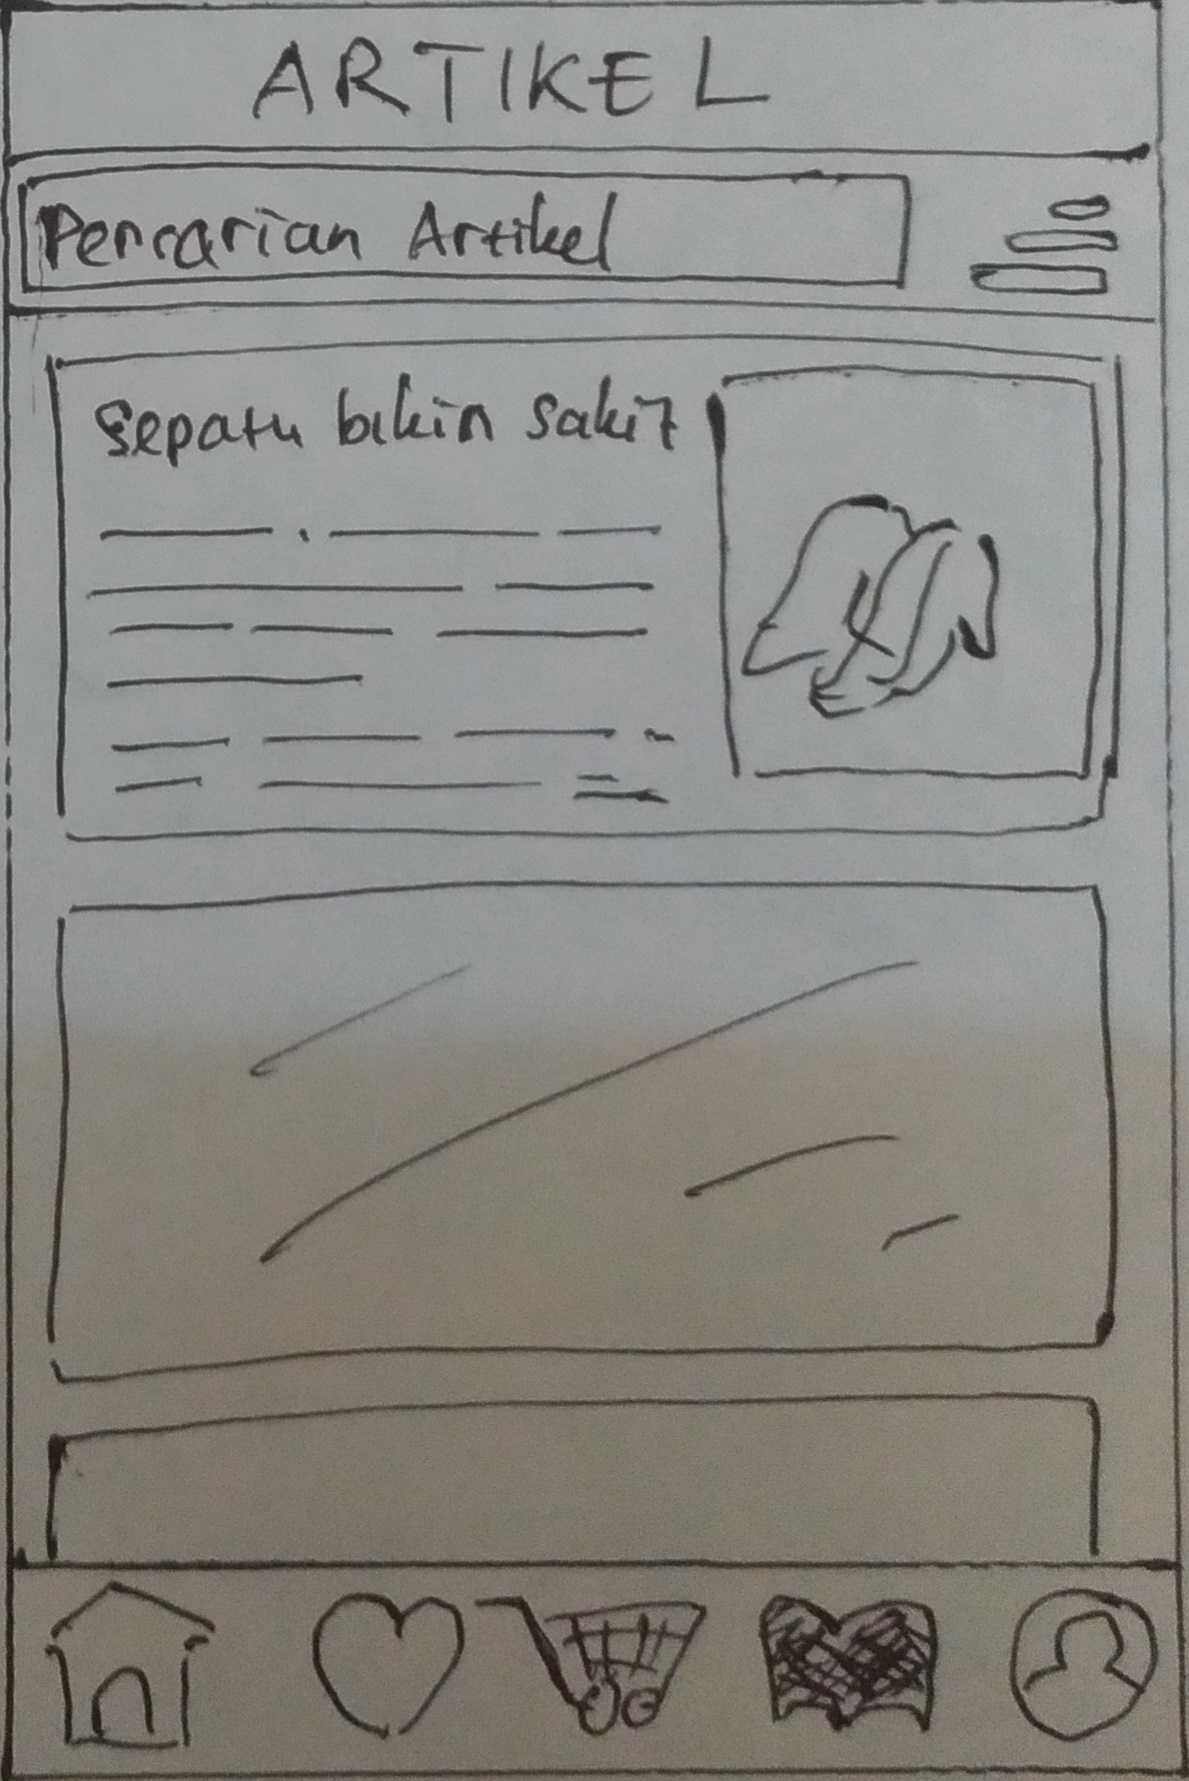 ARTIKEL
Pencarian Artikel
Sepatu bikin sakit